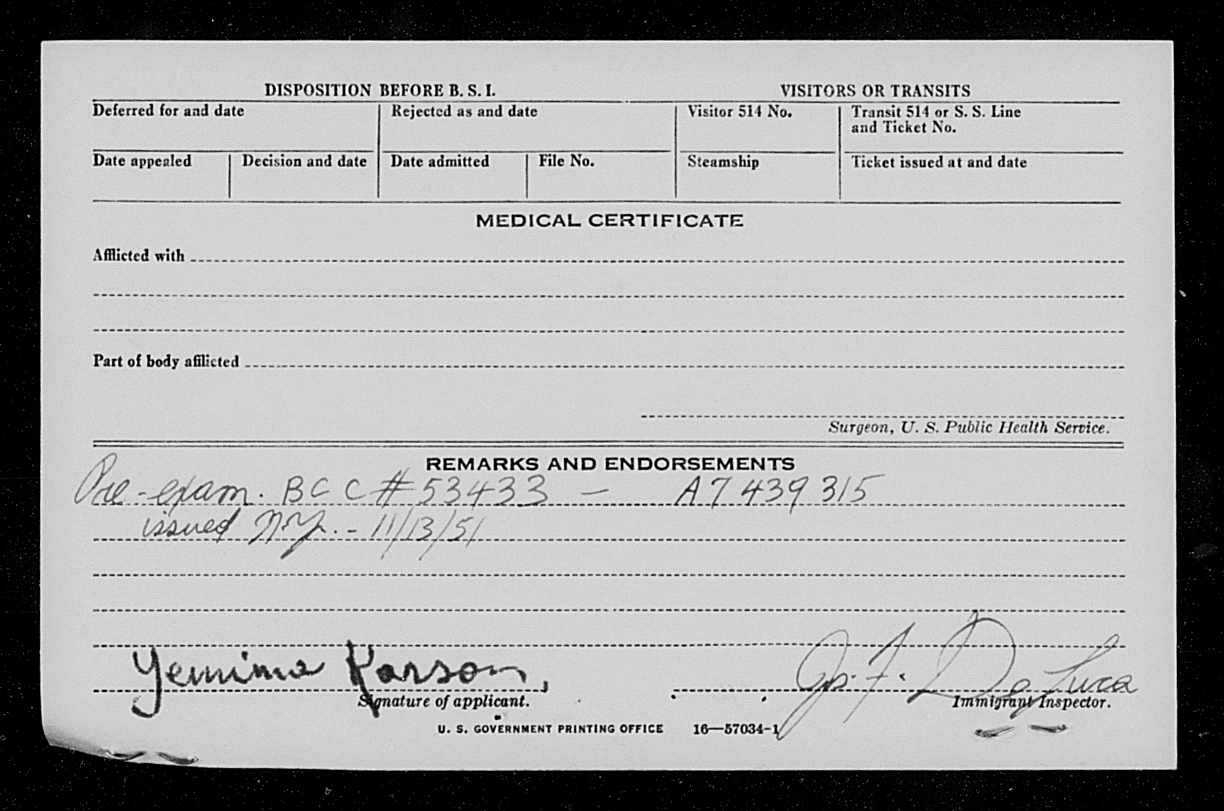 DISPOSITION BEFORE B. S. I. VISITORS OR TRANSITS
Deferred for and date Rejected as and date Visitor 514 No. Transit 514 or S. S. Line
and Ticket No.
Date appealed Decision and date Date admitted File No. Steamship Ticket issued at and date
MEDICAL CERTIFICATE
Afflicted with
Part of body afflicted
Surgeon, U. S. Public Health Service.
REMARKS AND ENDORSEMENTS
Pre-exam. BCC #53433 - A7 439 315
issued N.Y. - 11/13/51
Yemima Karson,
Jos. F. De Luca
Signature of applicant. Immigrant Inspector.
U. S. GOVERNMENT PRINTING OFFICE 16—57034-1